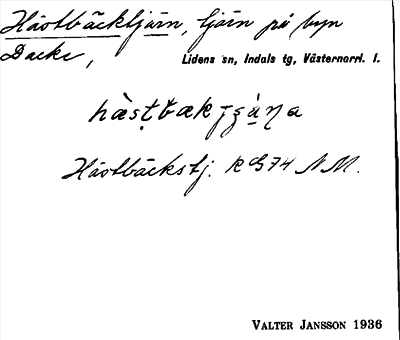 Hästbäcktjärn, tjärn på byn
Backe,
Lidens sn, Indals tg, Västernorrl. l.
Hästbäckstj. RG74 NM.
VALTER JANSSON 1936